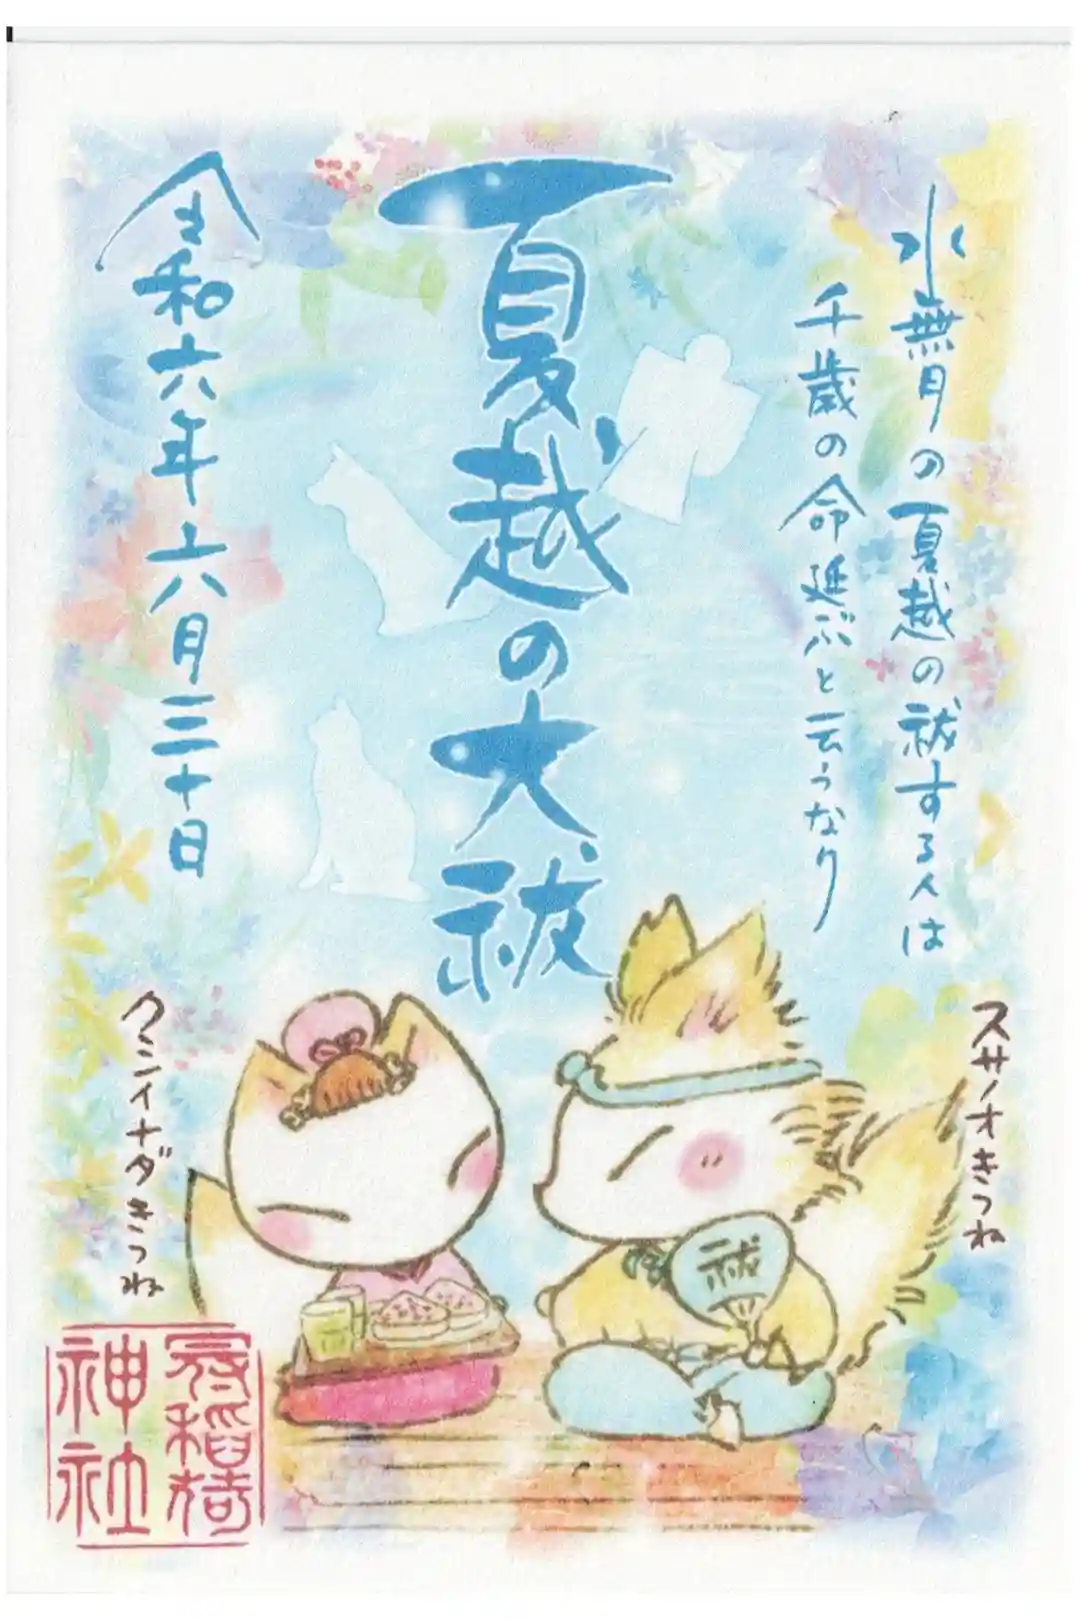 水無月の夏越の祓する人は
千歳の命延ぶと云うなり
夏越の大祓
令和六年六月三十日
スサノオきつね
クシイナダきつね
祓
冠稲荷
神社